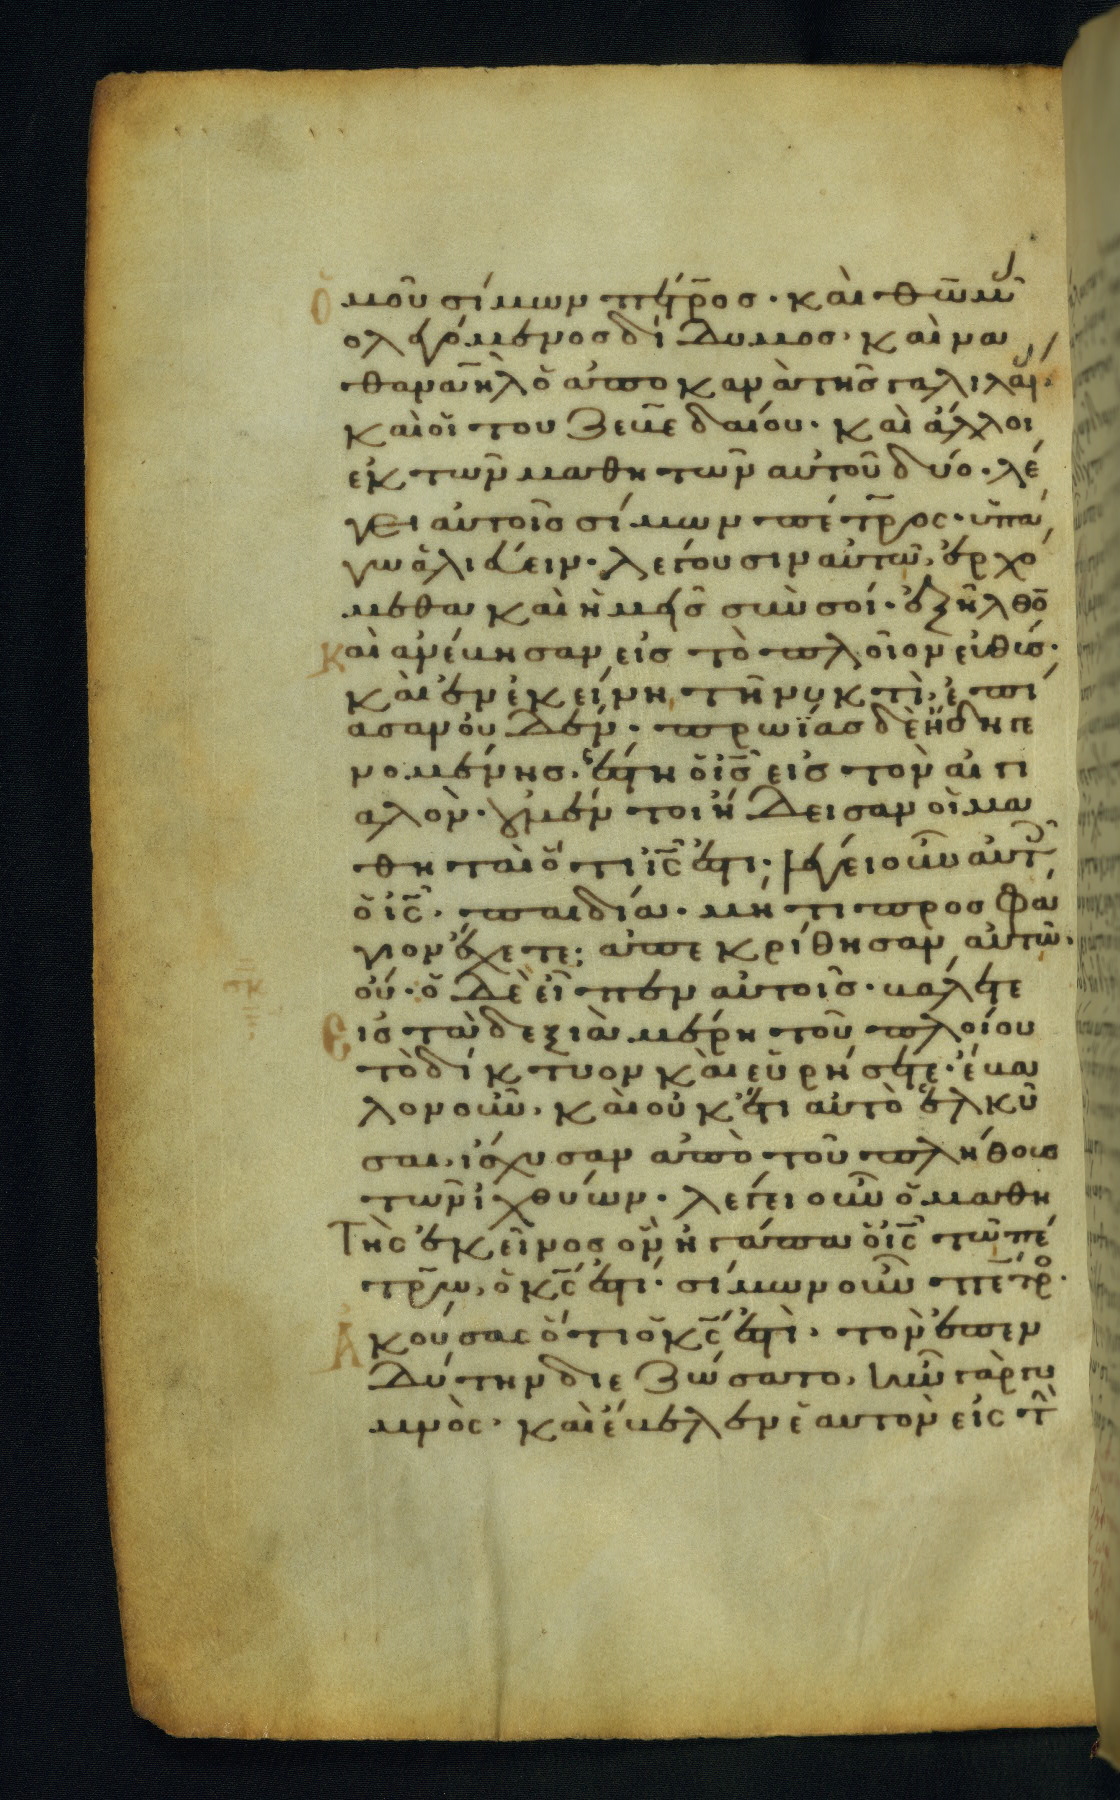 ὁμοῦ σίμων πέτρος· καὶ θωμᾶς
ὁ λεγόμενος δίδυμος· καὶ να
θαναὴλ ὁ ἀπὸ κανὰ τῆς γαλιλαί·
καὶ οἱ του ζεβεδαίου· καὶ ἄλλοι
ἐκ τῶν μαθητῶν αὐτοῦ δύο· λέ
γει αὐτοῖς σίμων πέτρος· ὑπά
γω ἁλιεύειν· λέγουσιν αὐτῶ, ἐρχό
μεθα καὶ ἡμεῖς σὺν σοί· ἐξῆλθον
καὶ ἀνέβησαν εἰς τὸ πλοῖον εὐθύς·
καὶ ἐν ἐκείνη τῆ νυκτὶ, ἐπί
ασαν οὐδέν· πρωΐας δὲ ἤδη γε
νομένης, ἔστη ὁ ἰς εἰς τὸν αἰγι
αλὸν· οὐ μέν τοι ἤδεισαν οἱ μα
θηταὶ ὅτι ἰς ἐστι· λέγει οὖν αὐτοῖς
ὁ ἰς· παιδία· μή τι προσφά
γιον ἔχετε; ἀπεκρίθησαν αὐτῶ·
οὔ· ὁ δὲ εἶπεν αὐτοῖς· βάλετε
εἰς τὰ δεξιὰ μέρη τοῦ πλοίου
τὸ δίκτυον καὶ εὑρήσετε· ἔβα
λον οὖν· καὶ οὐκ ἔτι αὐτὸ ἑλκύ
σαι, ἴσχυσαν ἀπὸ τοῦ πλήθους
τῶν ἰχθύων· λέγει οὖν ὁ μαθη
τὴς ἐκεῖνος ὃν ἠγάπα ὁ ἰς τῶ πέ
τρω, ὁ κς ἐστι· σίμων οὖν πέτρο·
ἀκούσας ὅτι ὁ κς ἐστὶ· τὸν ἐπεν
δύτην διεζώσατο, ἦν γὰρ γυ
μνὸς· καὶ ἔβαλεν ἑαυτὸν εἰς τὴν